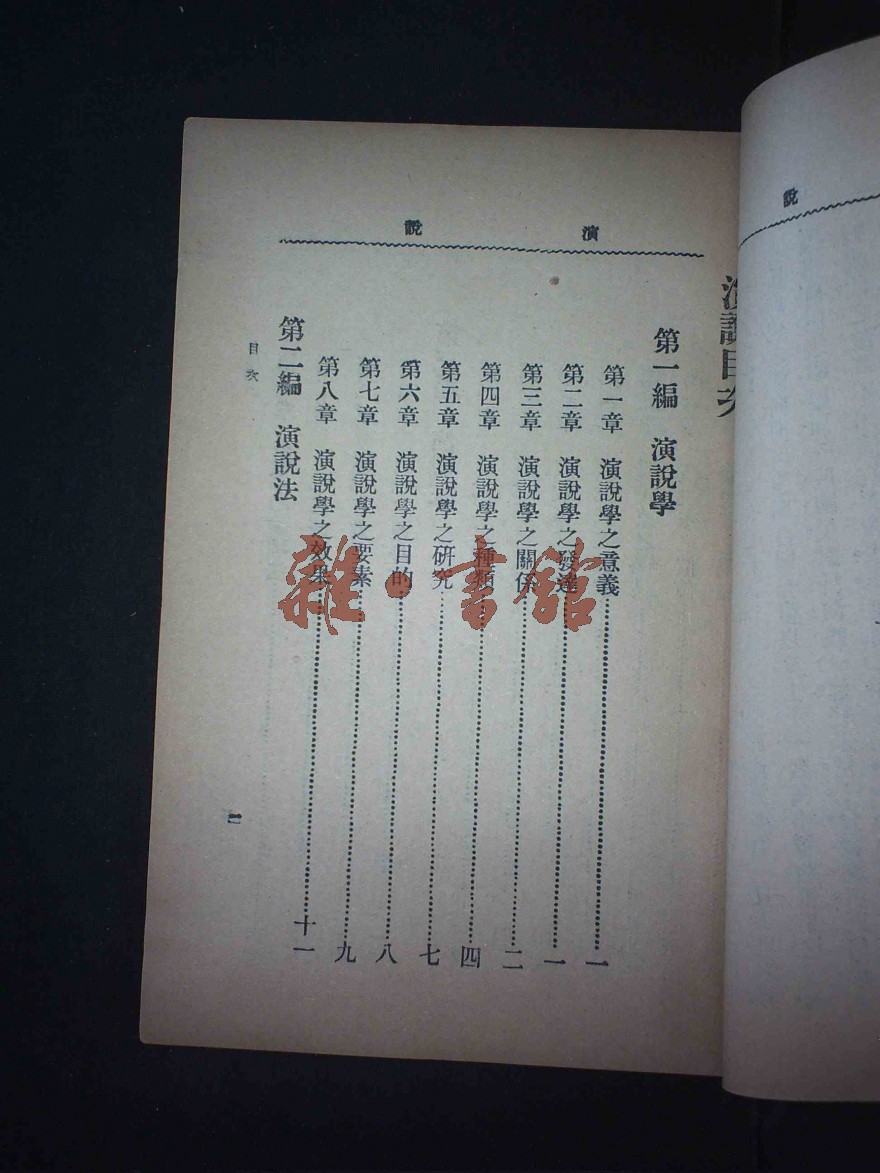 演說
說
演說目次
第一編 演說學
第一章 演說學之意義………一
第二章 演說學之發達………一
第三章 演說學之關係………二
第四章 演說學之種類………四
第五章 演說學之研究………七
第六章 演說學之目的………八
第七章 演說學之要素………九
第八章 演說學之效果………十一
第二編 演說法
目次
一
雜·書館